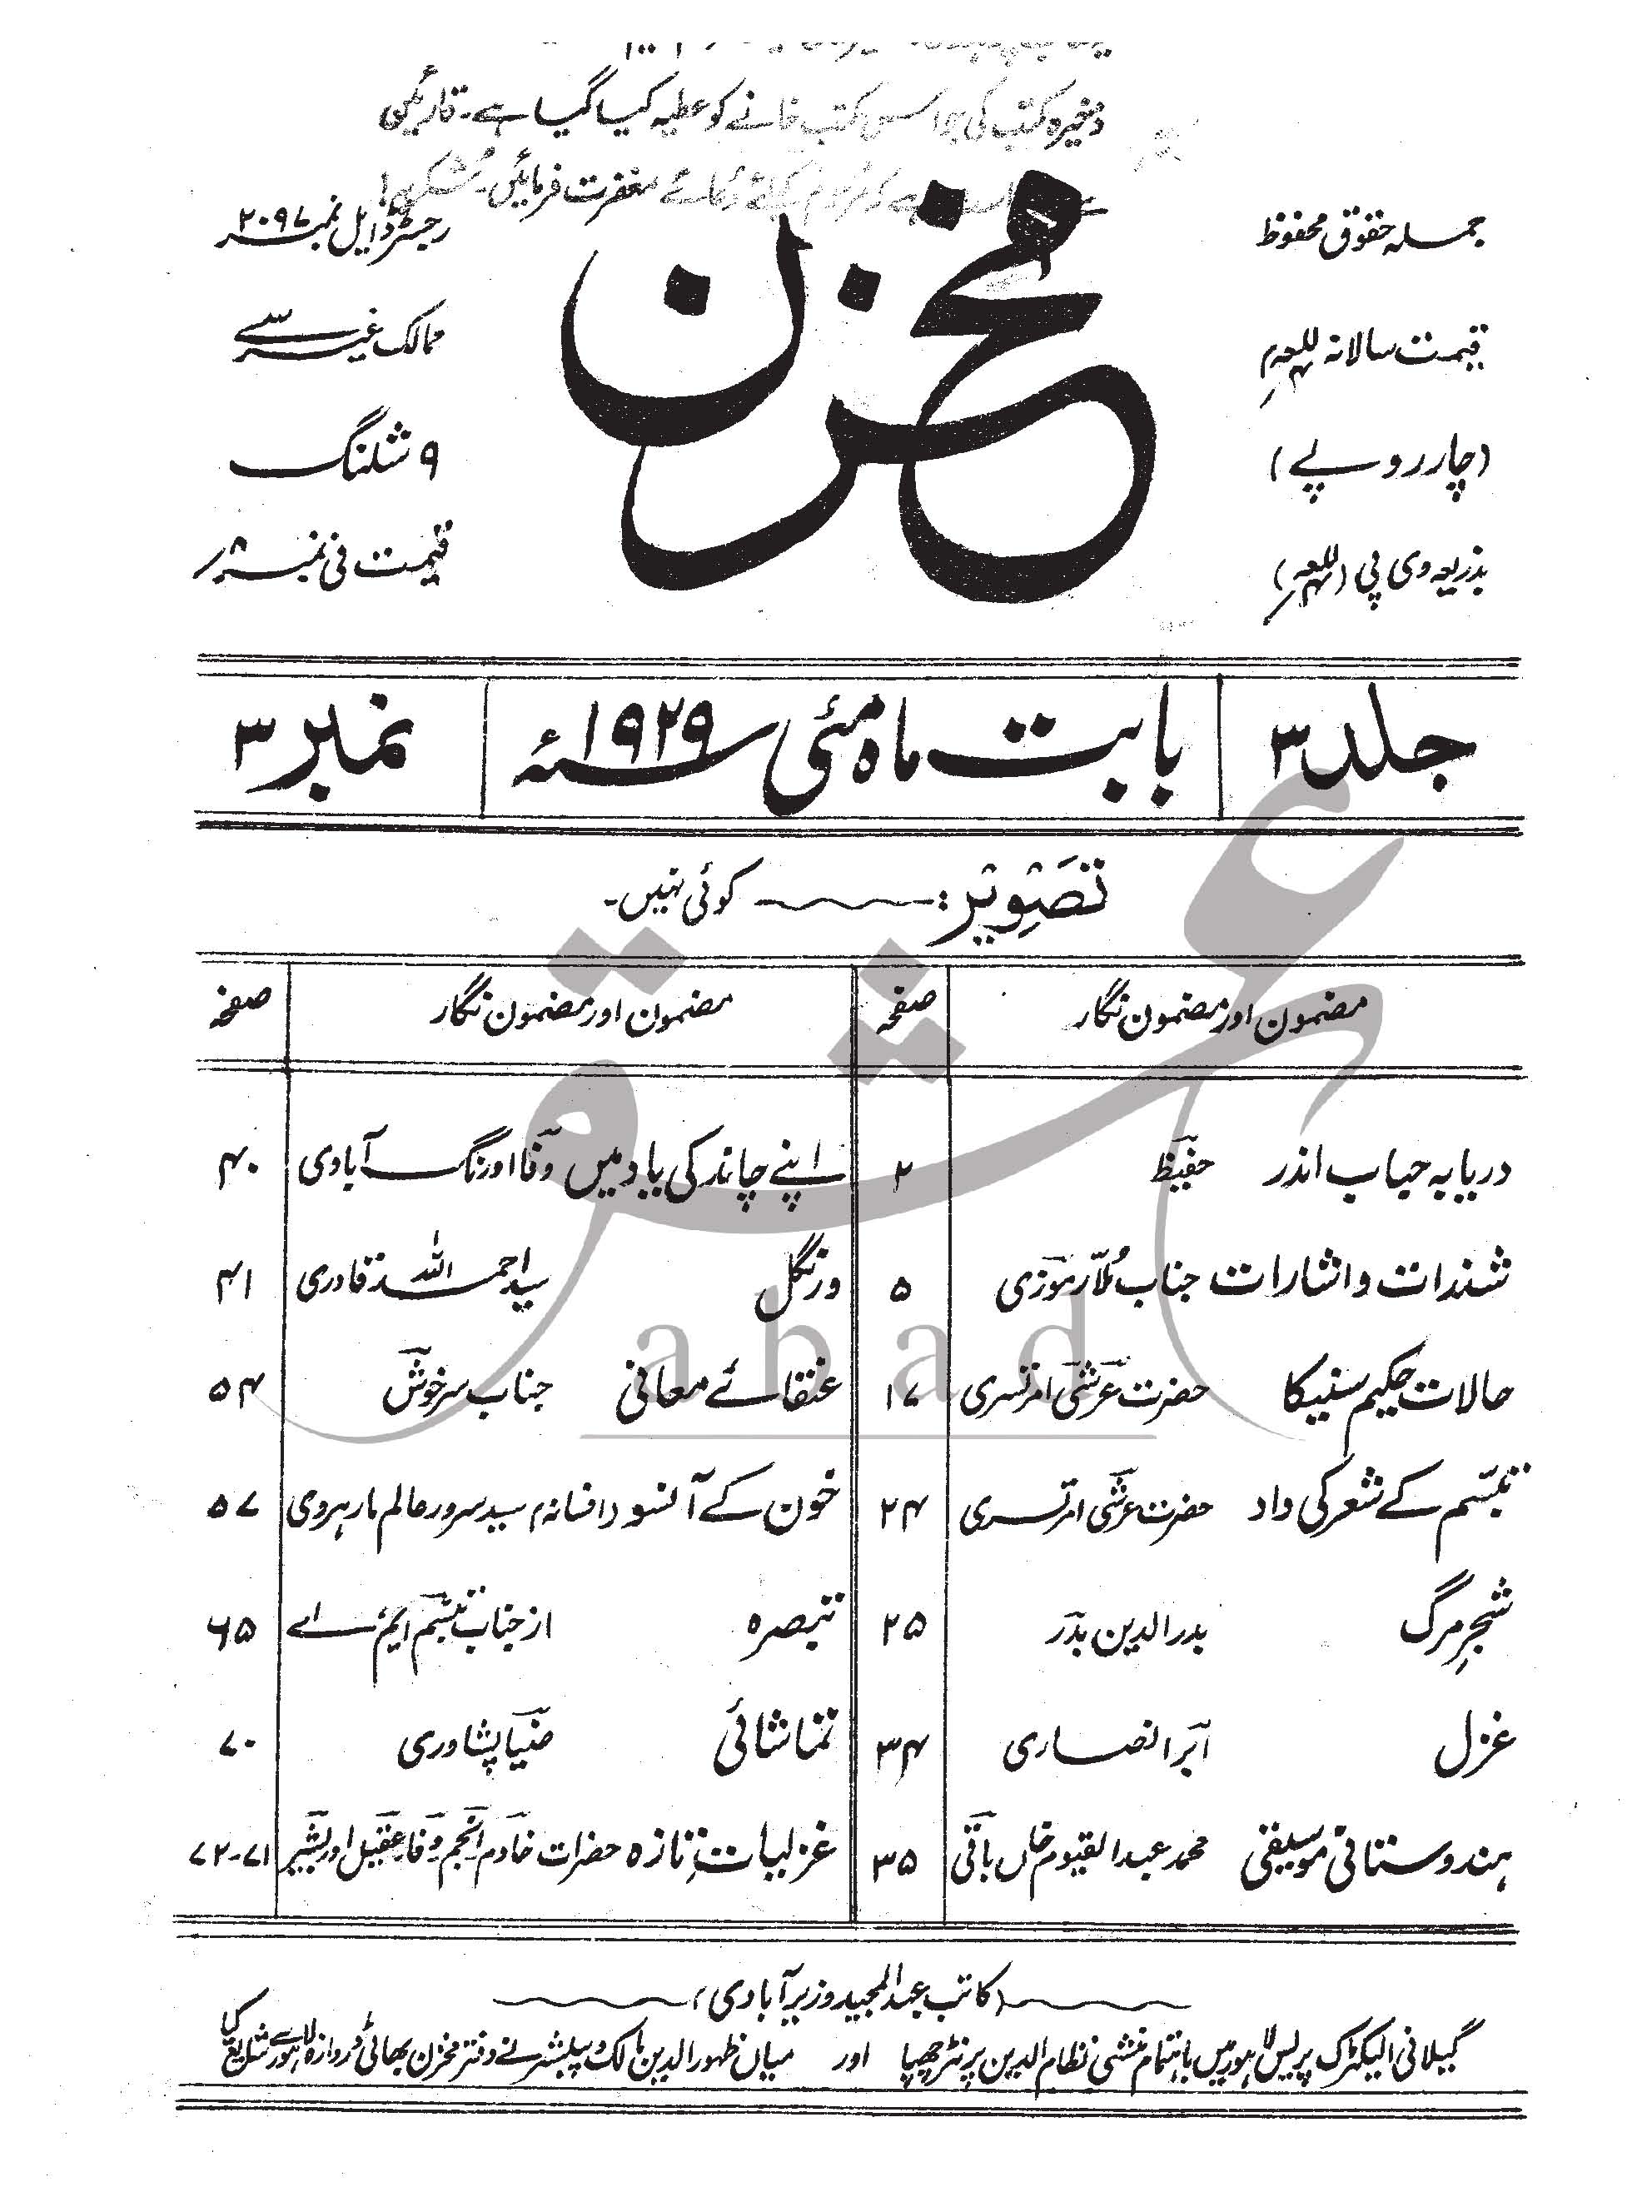 ذخیرہ کتب کی جو اس کتب خانے کو عطیہ کیا گیا ہے۔ قارئین
ہے کہ مرحوم کیلئے دعائے مغفرت فرمائیں۔ شکریہ!
مخزن
جملہ حقوق محفوظ
قیمت سالانہ للعہ
(چار روپے)
بذریعہ وی پی (للعہ)
رجسٹرڈ ایل نمبر ۲۰۹۷
ممالک غیر سے
۹ شلنگ
قیمت فی نمبر ۸؍
جلد ۳ بابت ماہ مئی ۱۹۲۹ء نمبر ۳
تصویر: کوئی نہیں۔
مضمون اور مضمون نگار صفحہ مضمون اور مضمون نگار صفحہ
دریا بہ حباب اندر حفیظ ۲
شذرات و اشارات جناب ملا رموزی ۵
حالات حکیم سنیکا حضرت عرشی امرتسری ۱۷
تبسم کے شعر کی داد حضرت عرشی امرتسری ۲۴
شجرِ مرگ بدرالدین بدر ۲۵
غزل ابر انصاری ۳۴
ہندوستانی موسیقی محمد عبدالقیوم خاں باقی ۳۵
اپنے چاند کی یاد میں وفا اورنگ آبادی ۴۰
ورنگل سید احمد اللہ قادری ۴۱
عنقائے معانی جناب سرخوش ۵۴
خون کے آنسو (افسانہ) سید سرور عالم مارہروی ۵۷
تبصرہ از جناب تبسم ایم اے ۶۵
تماشائی ضیا پشاوری ۷۰
غزلیات تازہ حضرات خادم انجم وفا عقیل اور بشیر ۷۱-۷۲
(کاتب عبدالمجید وزیر آبادی)
گیلانی الیکٹرک پریس لاہور میں باہتمام منشی نظام الدین پرنٹر چھپا اور میاں ظہور الدین مالک و پبلشر نے دفتر مخزن بھاٹی دروازہ لاہور سے شائع کیا
عشق
abad